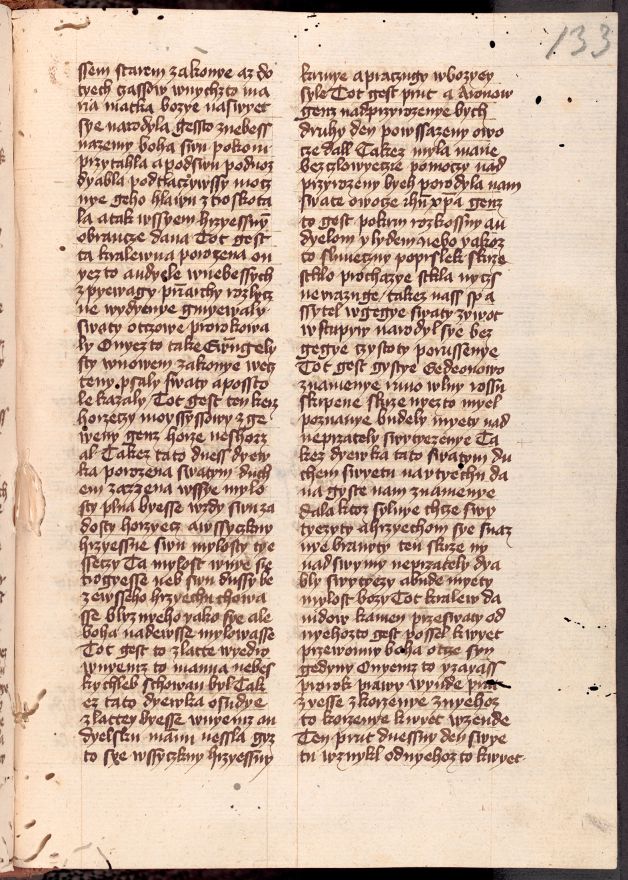 133
ssem starem zakonye az do
tyech czassow wnychzto ma
ria matka bozye naswyet
sye narodyla gessto znebess
nazemy boha swu pokoru
przytahla a podswu podnoz
dyabla podtlaczywssy mocz
nye geho hlawu ztroskota
la atak wssyem hrzyessnym
obrancze dana Tot gest
ta kralewna porozena on
yez to andyele wnebessych
zpyewagy priarchy rozlycz
ne wydyenye gmyewaly
swaty otczowe prorokowa
ly Onyezto take Ewangely
sty wnowem zakonye wecz
teny psaly swaty apossto
le kazaly Tot gest ten kerz
horzeczy moyssyssowy zge
weny genz horze neshorz
al Takez tato dness dyew
ka porozena swatym duch
em zazzena wssye mylo
sty plna byesse wzdy swu za
dosty horzyecz awssyczkny
hrzyessne swu mylosty tye
sseczy Ta mylost wnye sie
rozgyesse neb swu dussy be
zewsseho hrzyechu chowa
sse blyznyeho yako sye ale
boha nadewsse mylowasse
Tot gest to zlatte wyedro
wnyemz to manna nebes
ky chleb schowan byl Tak
ez tato dyewka osudye
zlattey byesse wnyemz an
dyelsku mannu nessla gyz
to sye wssyczkny hrzyessny
krmye apraczugy wbozyey
syle Tot gest prut a Aronow
genz nadprzyrozenye bych
druhy den powssazeny owo
cze dall Takez myla marie
bezczlowyecze pomoczy nad
przyrozeny byeh porodyla nam
swate owocze ihu xpa genz
to gest pokrm rozkossny an
dyelom ylydem nebo yakoz
to sluneczny poprslek skrze
sklo prochazye skla nyczs
newrazuge takez nass spa
ssytel wgegye swaty zywot
wstupyw narodyl sye bez
gegye czystoty porussenye
Tot gest gystye Gedeonowo
znamenye runo wlny rossu
skrpene skrze nyezto myel
poznanye budely myety nad
neprzately swytyezenye Ta
kez dyewka tato swatym du
chem swyetu nawtyechu da
na gyste nam znamenye
dala ktoz sylnye chcze swy
tyezyty ahrzyechom sye snaz
nye branyty ten skrze ny
nadswymy neprzately dya
bly swytyezy abude myety
mylost bozy Tot kralew da
widow kamen przeswaty od
nyehozto gest possel kwyet
przewonny boha otcze syn
gedyny Onyemz to yzayass
prorok prawy wynde prut
zyesse zkorzenye znyehoz
to korzenye kwyet wzende
Ten prut dnessny den swye
tu wznykl odnyehoz to kwyet